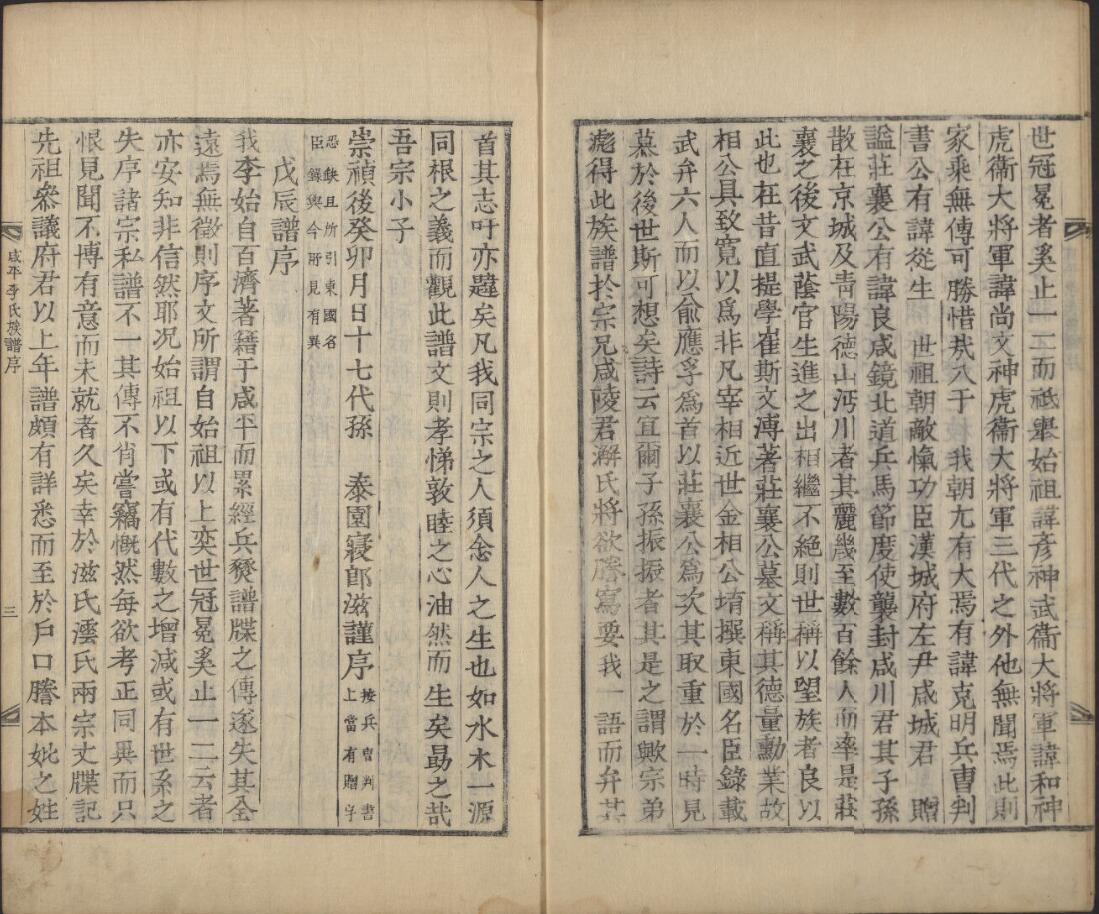 世冠冕者奚止一二而祗擧始祖諱彦神武衞大將軍諱和神
虎衞大將軍諱尚文神虎衞大將軍三代之外他無聞焉此則
家乘無傳可勝惜㦲入于 我朝尤有大焉有諱克明兵曺判
書公有諱從生 世祖朝敵愾功臣漢城府左尹咸城君 贈
謚莊襄公有諱良咸鏡北道兵馬節度使襲封咸川君其子孫
散在京城及靑陽德山沔川者其麗幾至數百餘人而率是莊
襄之後文武蔭官生進之出相繼不絶則世稱以望族者良以
此也在昔直提學崔斯文溥著莊襄公墓文稱其德量勳業故
相公具致寬以爲非凡宰相近世金相公堉撰東國名臣錄載
武弁六人而以兪應孚爲首以莊襄公爲次其取重於一時見
慕於後世斯可想矣詩云宜爾子孫振振者其是之謂歟宗弟
彪得此族譜於宗兄咸陵君澥氏將欲謄寫要我一語而弁其
首其志吁亦韙矣凡我同宗之人須念人之生也如水木一源
同根之義而觀此譜文則孝悌敦睦之心油然而生矣勗之㦲
吾宗小子
崇禎後癸卯月日十七代孫 泰園寢郎滋謹序 按兵曺判書上當有贈字
恐缺且所引東國名臣錄與今所見有異
戊辰譜序
我李始自百濟著籍于咸平而累經兵燹譜牒之傳遂失其全
遠焉無徵則序文所謂自始祖以上奕世冠冕奚止一二云者
亦安知非信然耶况始祖以下或有代數之增减或有世系之
失序諸宗私譜不一其傳不肖嘗竊慨然每欲考正同異而只
恨見聞不博有意而未就者久矣幸於滋氏澐氏兩宗丈牒記
先祖叅議府君以上年譜頗有詳悉而至於戶口謄本妣之姓
咸平李氏族譜序
三